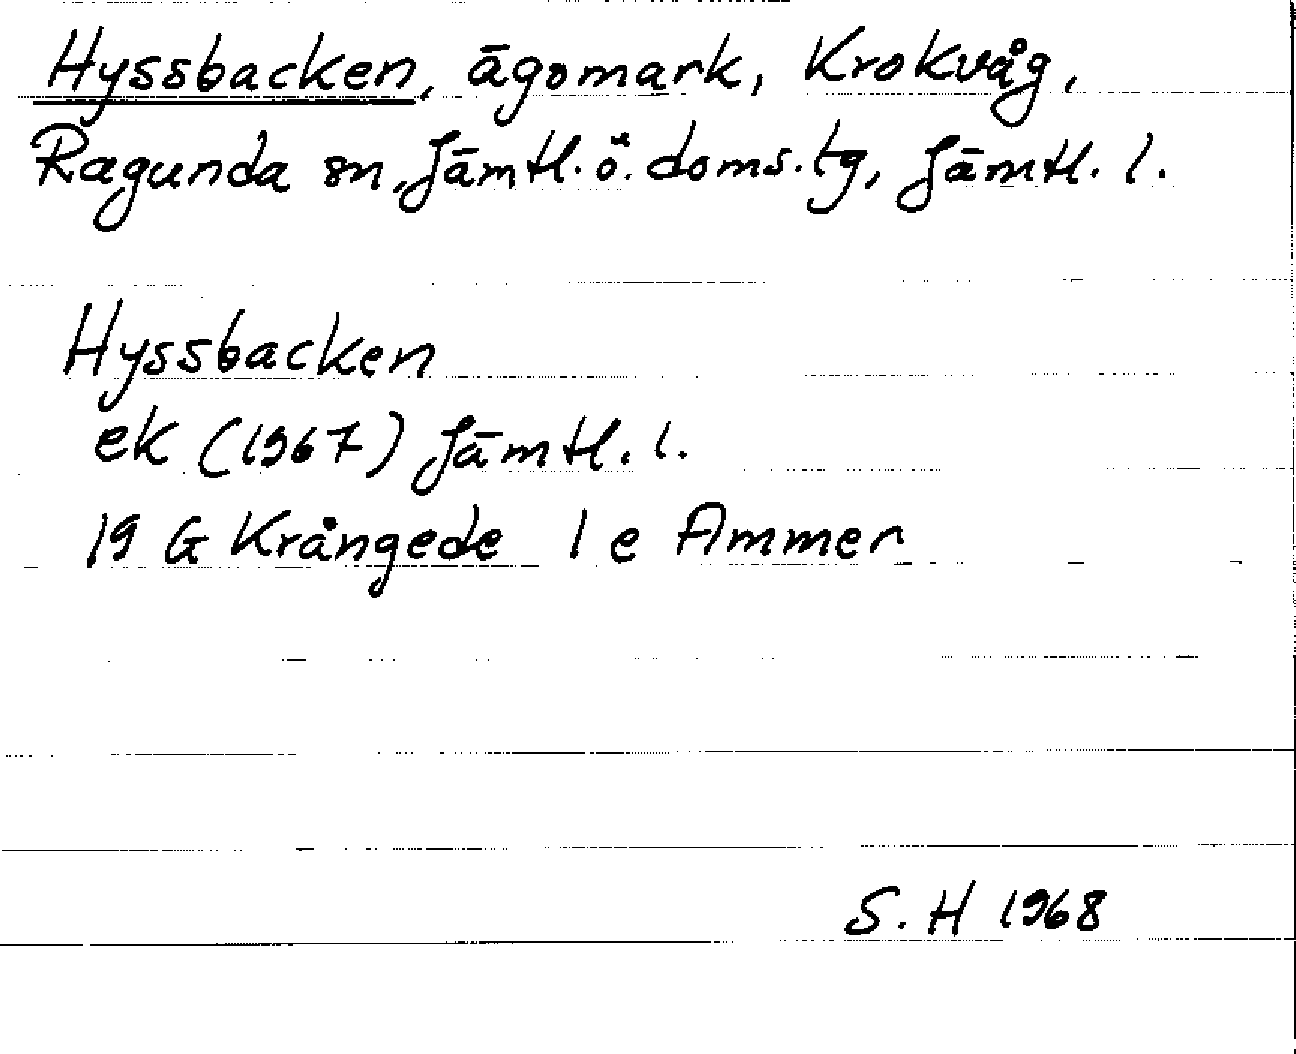 Hyssbacken, ägomark, Krokvåg,
Ragunda sn, Jämtl. ö. doms. tg, Jämtl. l.
Hyssbacken
ek (1967) Jämtl. l.
19 G Krångede 1 e Ammer
S. H 1968